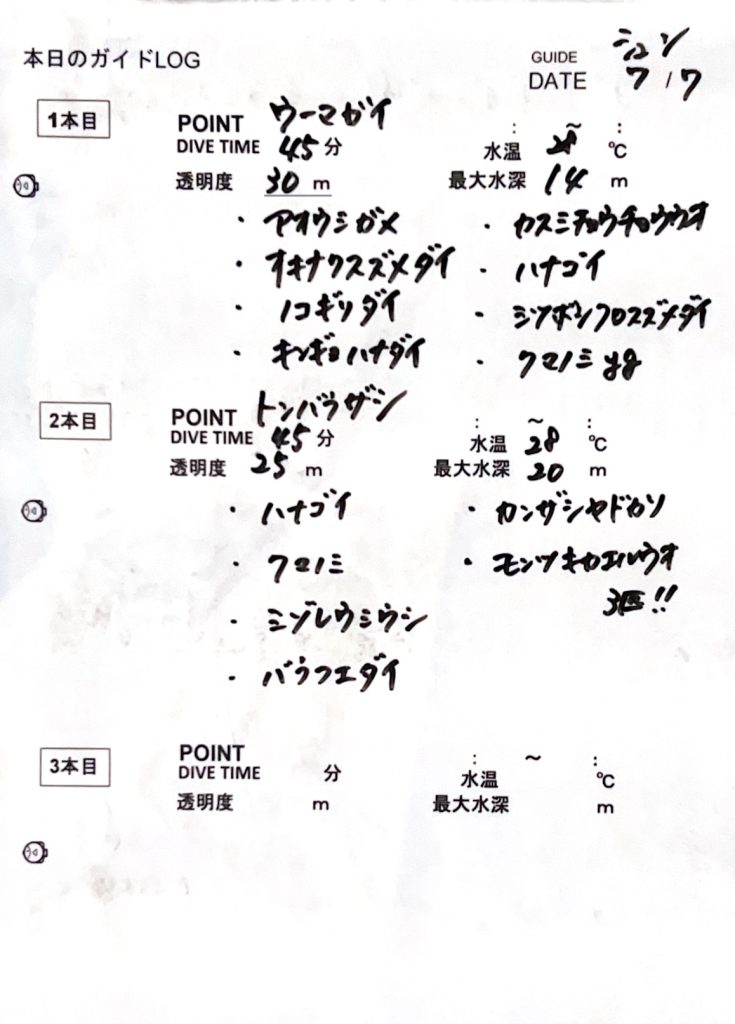 本日のガイドLOG
GUIDE シュン
DATE 7/7
1本目
POINT ウーマガイ
: ~ :
DIVE TIME 45分
水温 28 ℃
透明度 30 m
最大水深 14 m
・アオウミガメ ・カスミチョウチョウウオ
・オキナワスズメダイ ・ハナゴイ
・ノコギリダイ ・ミツボシクロスズメダイ
・キンギョハナダイ ・クマノミyg
2本目
POINT トンバラザシ
: ~ :
DIVE TIME 45分
水温 28 ℃
透明度 25 m
最大水深 20 m
・ハナゴイ ・カンザシヤドカリ
・クマノミ ・モンツキカエルウオ
3匹!!
・ミゾレウミウシ
・バラフエダイ
3本目
POINT
: ~ :
DIVE TIME 分
水温 ℃
透明度 m
最大水深 m